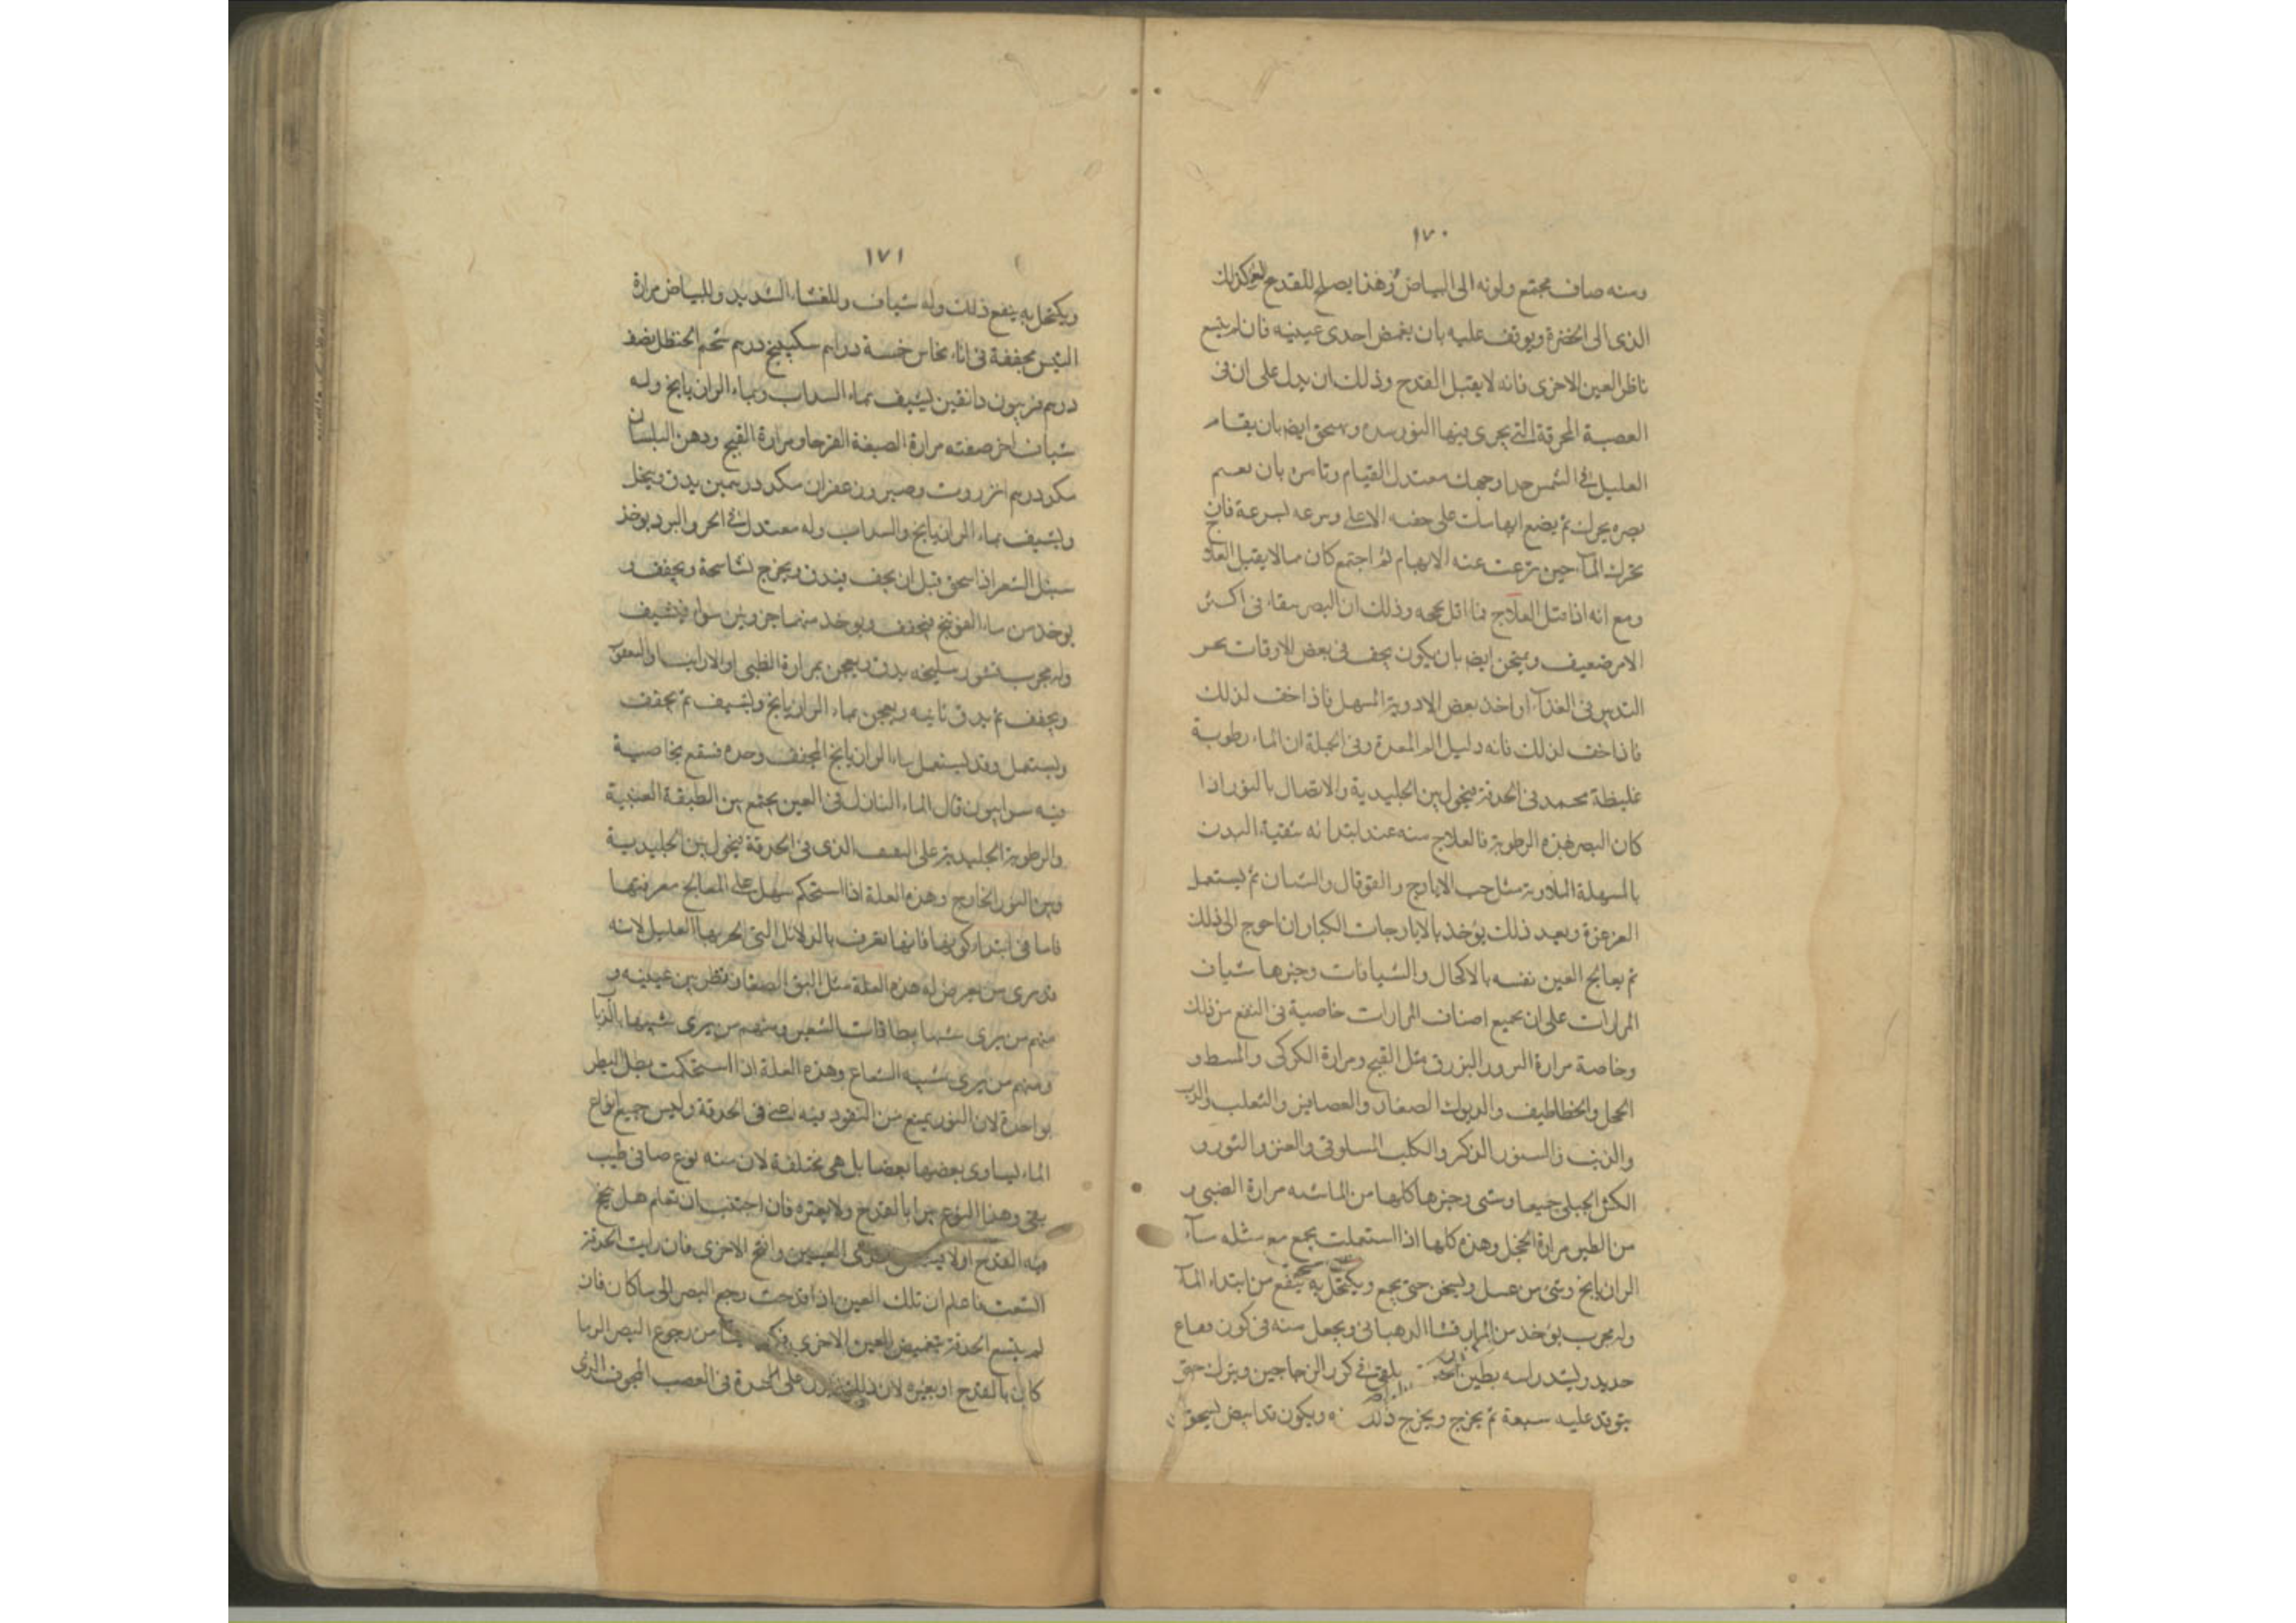 ١٧٠
ومنه صاف مجتمع ولونه الى البياض وهذا يصلح للقدح كذلك
الذى الى الخضرة ويوقف عليه بان يغمض احدى عينيه فان لم يتسع
ناظر العين الاخرى فانه لا يقبل القدح وذلك ان يدل على ان فى
العصبة المحرقة التى يجرى فيها النور سده ويمتحن ايضا بان يقام
العليل فى الشمس معتدل القيام وتامره بان
بصره يحرك ثم يضع ابهامك على جفنه الاعلى بسرعة فان
تحرك الماء حين نزعت عنه الابهام ثم اجتمع كان مما لا يقبل العلاج
ومع انه اذا قبل العلاج فما اقل نجحه وذلك ان البصر فى اكثر
الامر ضعيف ويمتحن ايضا بان يكون يجف فى بعض الاوقات
التدبير فى الغذاء او اخذ بعض الادوية المسهل فاذا خف لذلك
فاذا خف لذلك فانه دليل الم المعدة وفى الجملة ان الماء رطوبة
غليظة تجمد فى الحدقة فيحول بين الجليدية والاتصال بالنور اذا
كان البصر هذه الرطوبة فالعلاج منه عند ابتدائه تنقية البدن
بالمسهلة مثل حب الايارج والقوقايا ثم يستعمل
الغرغرة وبعد ذلك يؤخذ بالايارجات الكبار ان احوج الى ذلك
ثم يعالج العين نفسه بالاكحال والشيافات وخيرها شياف
المرارات على ان جميع اصناف المرارات خاصية فى النفع من ذلك
وخاصة مرارة مثل القبج ومرارة الكركى
الحجل والخطاطيف والديوك الصغار والعصافير والثعلب والدب
والذيب والسنور الذكر والكلب السلوقى والعنز والثور و
الكبش الجبلى جميعا وخيرها كلها من الماشية مرارة الضبى و
من الطير مرارة الحجل وهذه كلها اذا استعملت يجمع مع مثله ماء
الرازيانج وشئ من عسل ويسخن حتى يجمع ويكتحل به ينفع من ابتداء الماء
وله مجرب يؤخذ من الدهبانى ويجعل منه فى كوز
حديد ويشد راسه بطين يلقى فى كور الزجاجين ويترك حتى
يتوقد عليه سبعة ثم يخرج ويخرج ذلك ويكون قد ابيض يسحق
١٧١
ويكتحل به ينفع ذلك وله شياف وللغشاء الشديد وللبياض مرارة
التيس مجففة فى اناء نحاس خمسة دراهم سكبينج درهم شحم الحنظل نصف
درهم فربيون دانقين يشيف بماء السداب وبماء الرازيانج وله
شياف اخر صفته مرارة ومرارة القبج ودهن البلسان
مكد درهم انزروت وصبر وزعفران مكد درهمين يدق وينخل
ويشيف بماء الرازيانج والسداب وله معتدل فى الحر والبرد يوخذ
اذا سحق قبل ان يجف ويجفف و
يوخذ من ماء فيجفف ويوخذ منهما جزوين سواء فيشيف
وله مجرب قشور سليخه يدق ويعجن بمرارة الظبى او الارانب
ويجفف ثم يدق ثانيه ويعجن بماء الرازيانج ويشيف ثم يجفف
ويستعمل وقد يستعمل ماء الرازيانج المجفف وحده فينفع بخاصية
فيه سرابيون قال الماء النازل فى العين يجتمع بين الطبقة العنبية
والرطوبة الجليدية على الثقب الذى فى الحدقة فيحول بين الجليدية
وبين النور الخارج وهذه العلة اذا استحكم سهل على المعالج معرفتها
فاما فى ابتداء كونها فانها تعرف بالدلائل التى يخبر بها العليل لانه
قد يرى من يعرض له هذه العلة مثل البق الصغار تطير بين عينيه و
منهم من يرى شبها بطاقات الشعر ومنهم من يرى شبيها بالذبا
ومنهم من يرى شبيه الشعاع وهذه العلة اذا استحكمت بطل البصر
بواحدة لان النور يمنع من النفوذ فيه فى الحدقة وليس جميع انواع
الماء يساوى بعضها بعضا بل هى مختلفة لان منه نوع صافى طيب
نقى وهذا النوع يبرا بالقدح ولا بغيره فان احببت ان تعلم هل ينجح
فيه القدح اولا العينين وافتح الاخرى فان رايت الحدقة
اتسعت فاعلم ان تلك العين اذا قدحت رجع البصر الى ما كان فان
لم يتسع الحدقة بتغميض العين الاخرى من رجوع البصر اليها
كان بالقدح او بغيره لان ذلك يدل على السدة فى العصب المجوف الذى